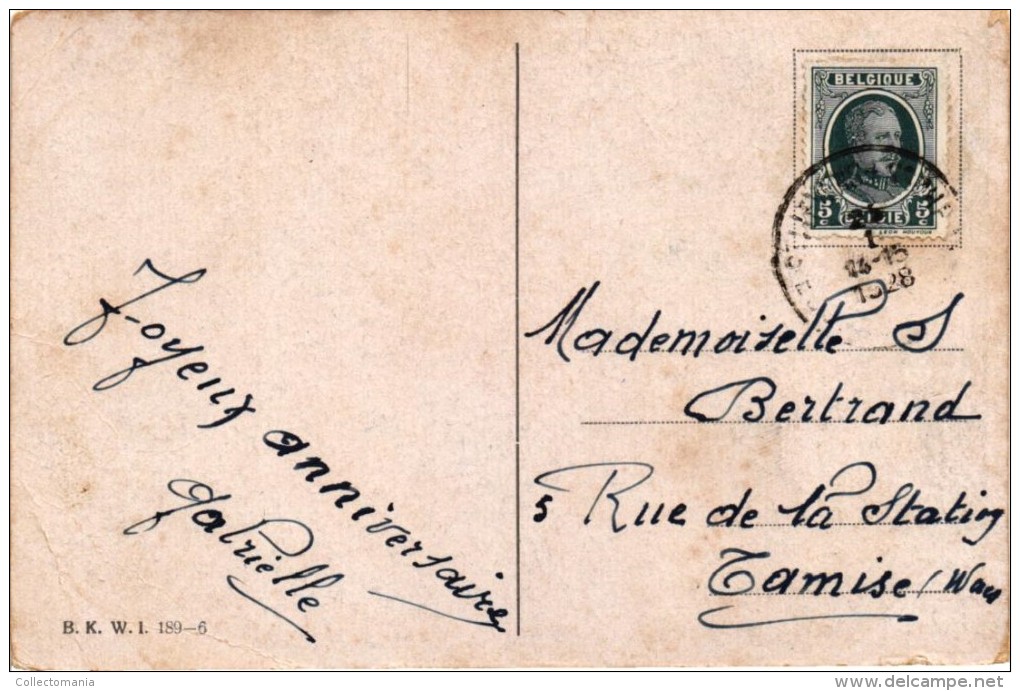 BELGIQUE
5c 5c
BELGIË
14-15
1928
Joyeux anniversaire
Gabrielle
Mademoiselle S
Bertrand
5 Rue de la Station
Tamise (Waes
B. K. W. I. 189–6
Collectomania
delcampe.net